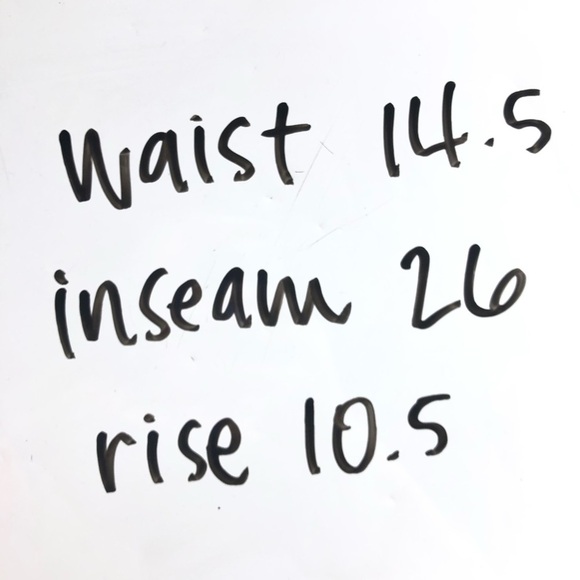 Waist 14.5
inseam 26
rise 10.5